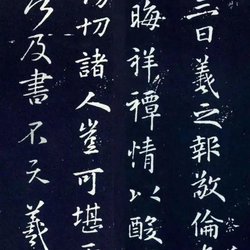 三日羲之報敬倫
晦祥禫情以酸
切諸人豈可堪
及書不次羲